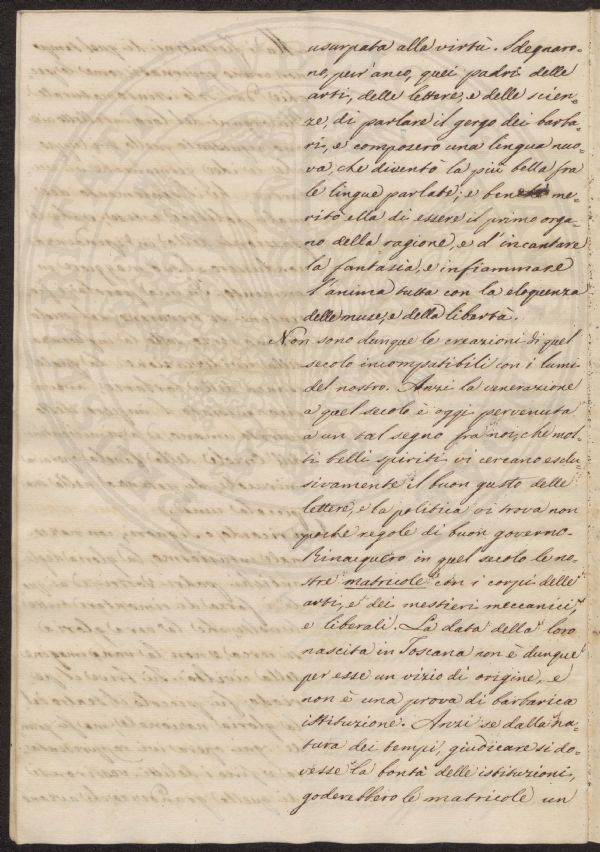 usurpata alla virtù. Sdegnaro-
no, pur'anco, quei padri delle
arti, delle lettere, e delle scien-
ze, di parlare il gergo dei barba-
ri, e composero una lingua nuo-
va, che diventò la più bella fra
le lingue parlate; e ben me-
ritò ella di essere il primo orga-
no della ragione, e d'incantare
la fantasia, e infiammare
l'anima tutta con la eloquenza
delle muse, e della libertà.
Non sono dunque le creazioni di quel
secolo incompatibili con i lumi
del nostro. Anzi la venerazione
a quel secolo è oggi pervenuta
a un tal segno fra noi, che mol-
ti belli spiriti vi cercano esclu-
sivamente il buon gusto delle
lettere, e la politica vi trova non
poche regole di buon governo.
Rinacquero in quel secolo le no-
stre matricole con i corpi delle
arti, e dei mestieri meccanici,
e liberali. La data della loro
nascita in Toscana non è dunque
per esse un vizio di origine, e
non è una prova di barbarica
istituzione. Anzi se dalla na-
tura dei tempi, giudicare si do-
vesse la bontà delle istituzioni,
goderebbero le matricole un